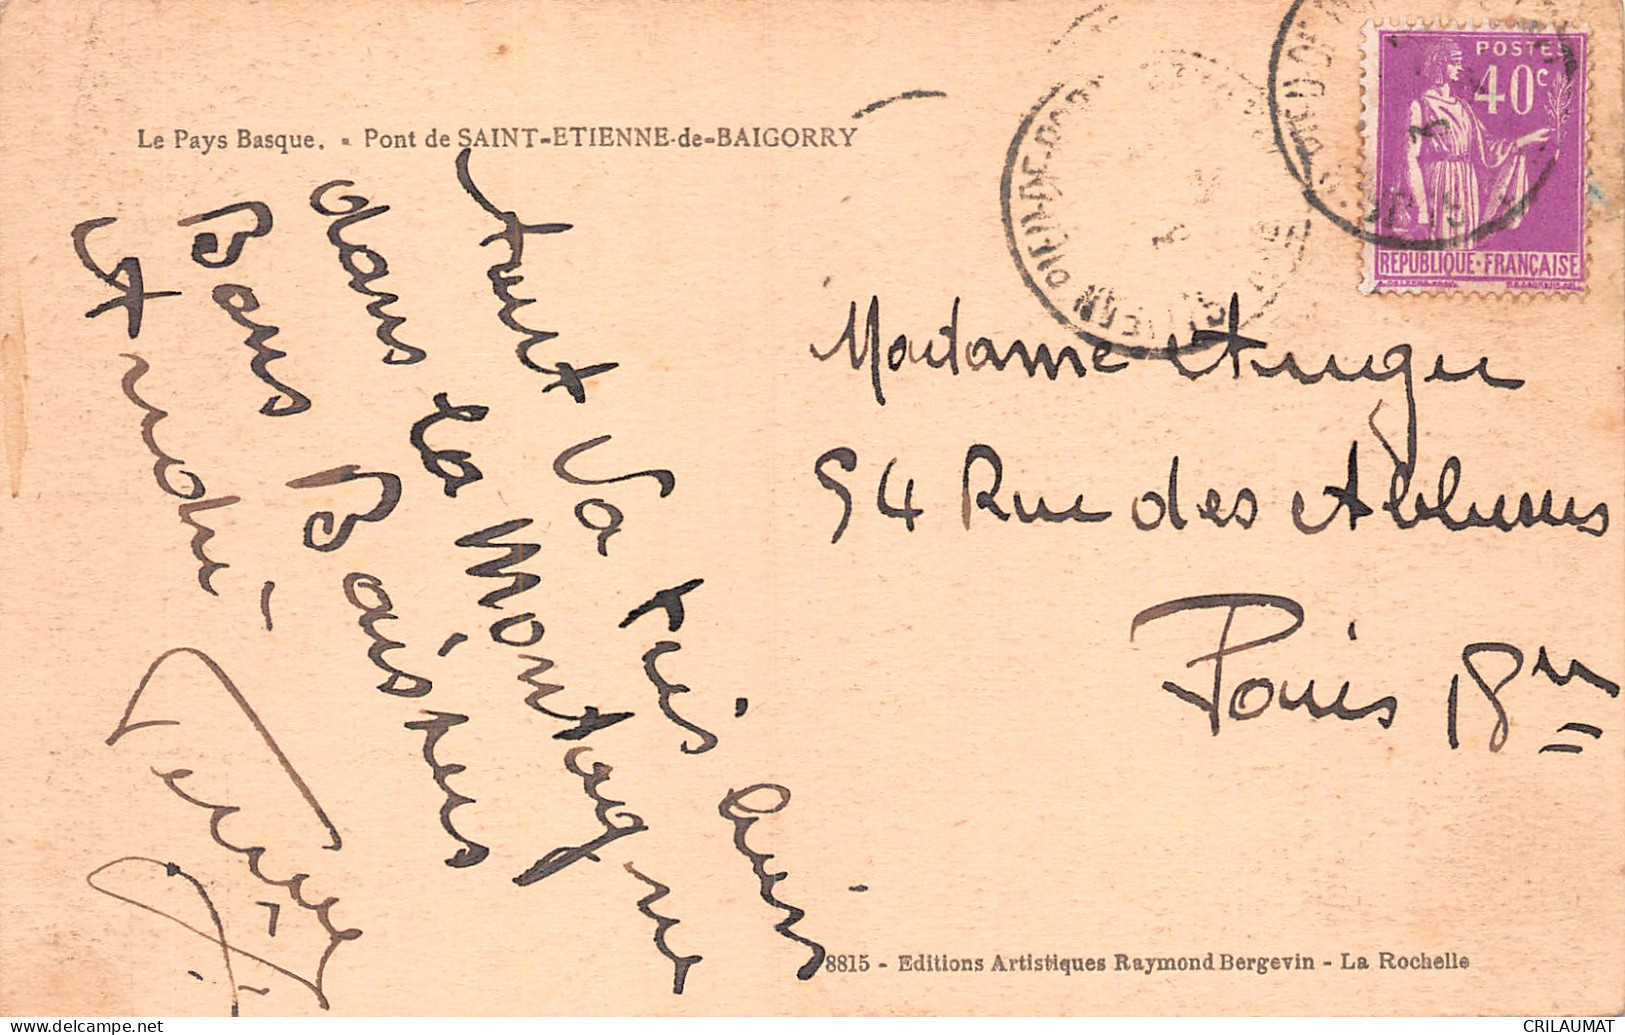 Le Pays Basque. - Pont de SAINT-ETIENNE-de-BAIGORRY
Tout va très bien
dans la Montagne
Bons Baisers
André
POSTES
40c
REPUBLIQUE·FRANÇAISE
Madame
94 Rue des Abbesses
Paris 18me
8815 - Editions Artistiques Raymond Bergevin - La Rochelle
CRILAUMAT